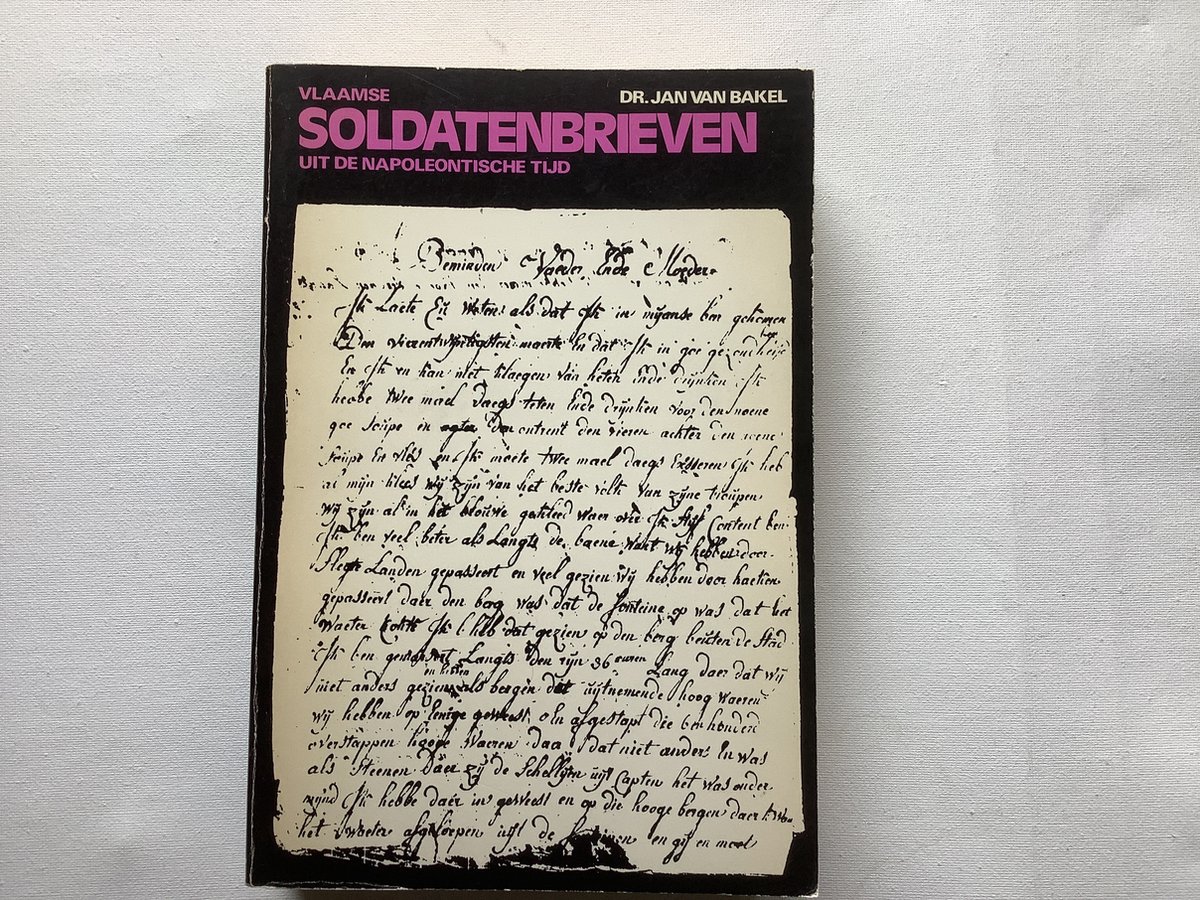 VLAAMSE
DR. JAN VAN BAKEL
SOLDATENBRIEVEN
UIT DE NAPOLEONTISCHE TIJD
Beminden Vaeder Ende Moeder
Ik Laete Eu Weten als dat Ik in myanse ben gekomen
Den vierentwyntigsten maerte En dat Ik in goe gezondheyt
En Ik en kan niet klaegen van heten Ende drijnken Ik
hebbe twee mael daegs teten Ende drijnken voor den noene
goe soupe in den ontrent den vieren achter den noene
soupe En vles en Ik moete twee mael daegs Exseren Ik heb
al mijn klees wij zijn van het beste volk van zijne troupen
wij zijn al in het blouwe gekleed waer over Ik stijf Content ben
Ik ben veel beter als Langts de baene want wij hebben door
slegte Landen gepasseert en veel gezien wij hebben door haeken
gepasseert daer den berg was dat de fonteine op was dat het
waeter kokte Ik heb dat gezien op den berg beuten de stad
Ik ben gemasseert Langts den rijn 36 euren Lang daer dat wij
niet anders gezien en hebben als bergen dat uijtnemende hoog waeren
wij hebben op Eenige geweest en afgestapt die honderd
overstappen hooge waeren daer dat niet anders En was
als steenen daer zij de schellijen uijt Capten het was onder
mijnd Ik hebbe daer in geweest en op die hooge bergen daer
het waeter afgeloepen uijt de en gij en moet